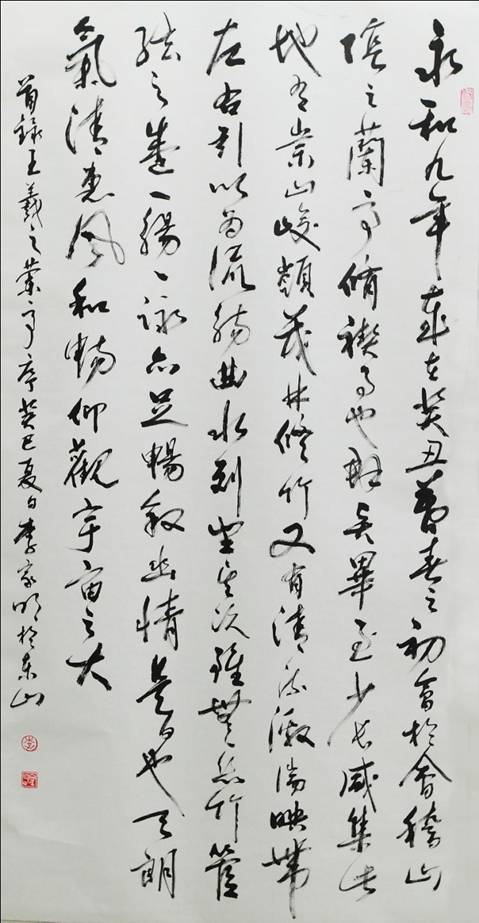 永和九年歲在癸丑暮春之初會於會稽山
陰之蘭亭脩禊事也群賢畢至少長咸集此
地有崇山峻嶺茂林修竹又有清流激湍映帶
左右引以為流觴曲水列坐其次雖無絲竹管
弦之盛一觴一詠亦足暢敘幽情是日也天朗
氣清惠風和暢仰觀宇宙之大
錄王羲之蘭亭序癸巳夏日李家明於東山
李